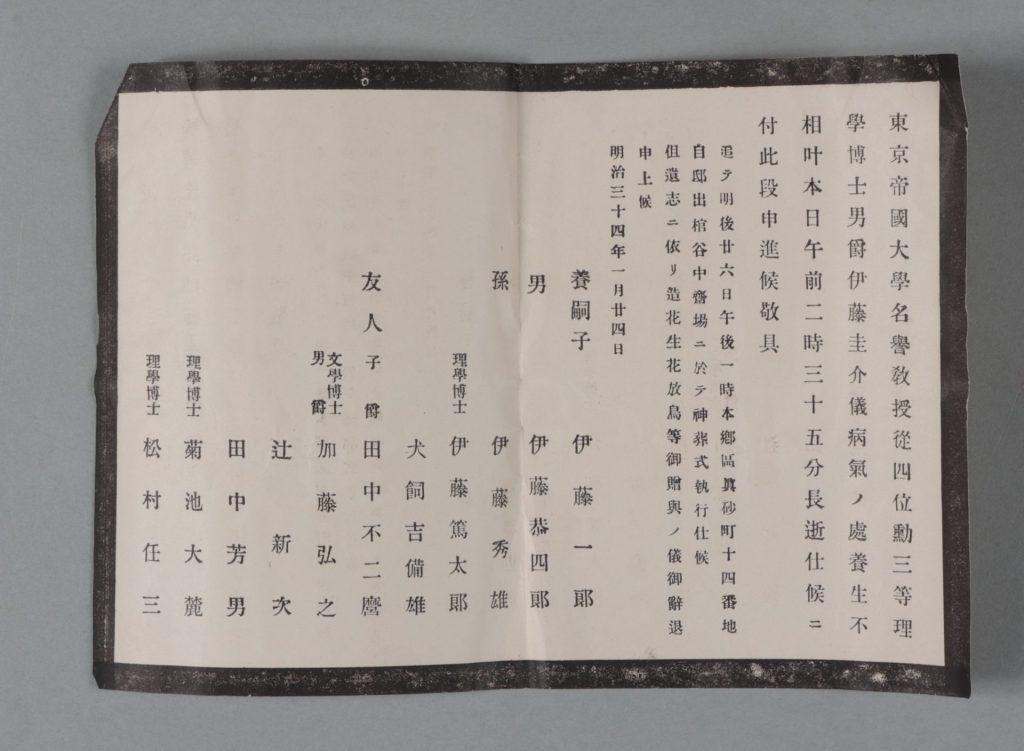 東京帝國大學名譽敎授從四位勳三等理
學博士男爵伊藤圭介儀病氣ノ處養生不
相叶本日午前二時三十五分長逝仕候ニ
付此段申進候敬具
追テ明後廿六日午後一時本鄕區眞砂町十四番地
自邸出棺谷中齋場ニ於テ神葬式執行仕候
但遺志ニ依リ造花生花放鳥等御贈與ノ儀御辭退
申上候
明治三十四年一月廿四日
養嗣子 伊藤一郎
男 伊藤恭四郎
孫 伊藤秀雄
理學博士 伊藤篤太郎
犬飼吉備雄
友人 子爵 田中不二麿
文學博士 男爵 加藤弘之
辻新次
田中芳男
理學博士 菊池大麓
理學博士 松村任三